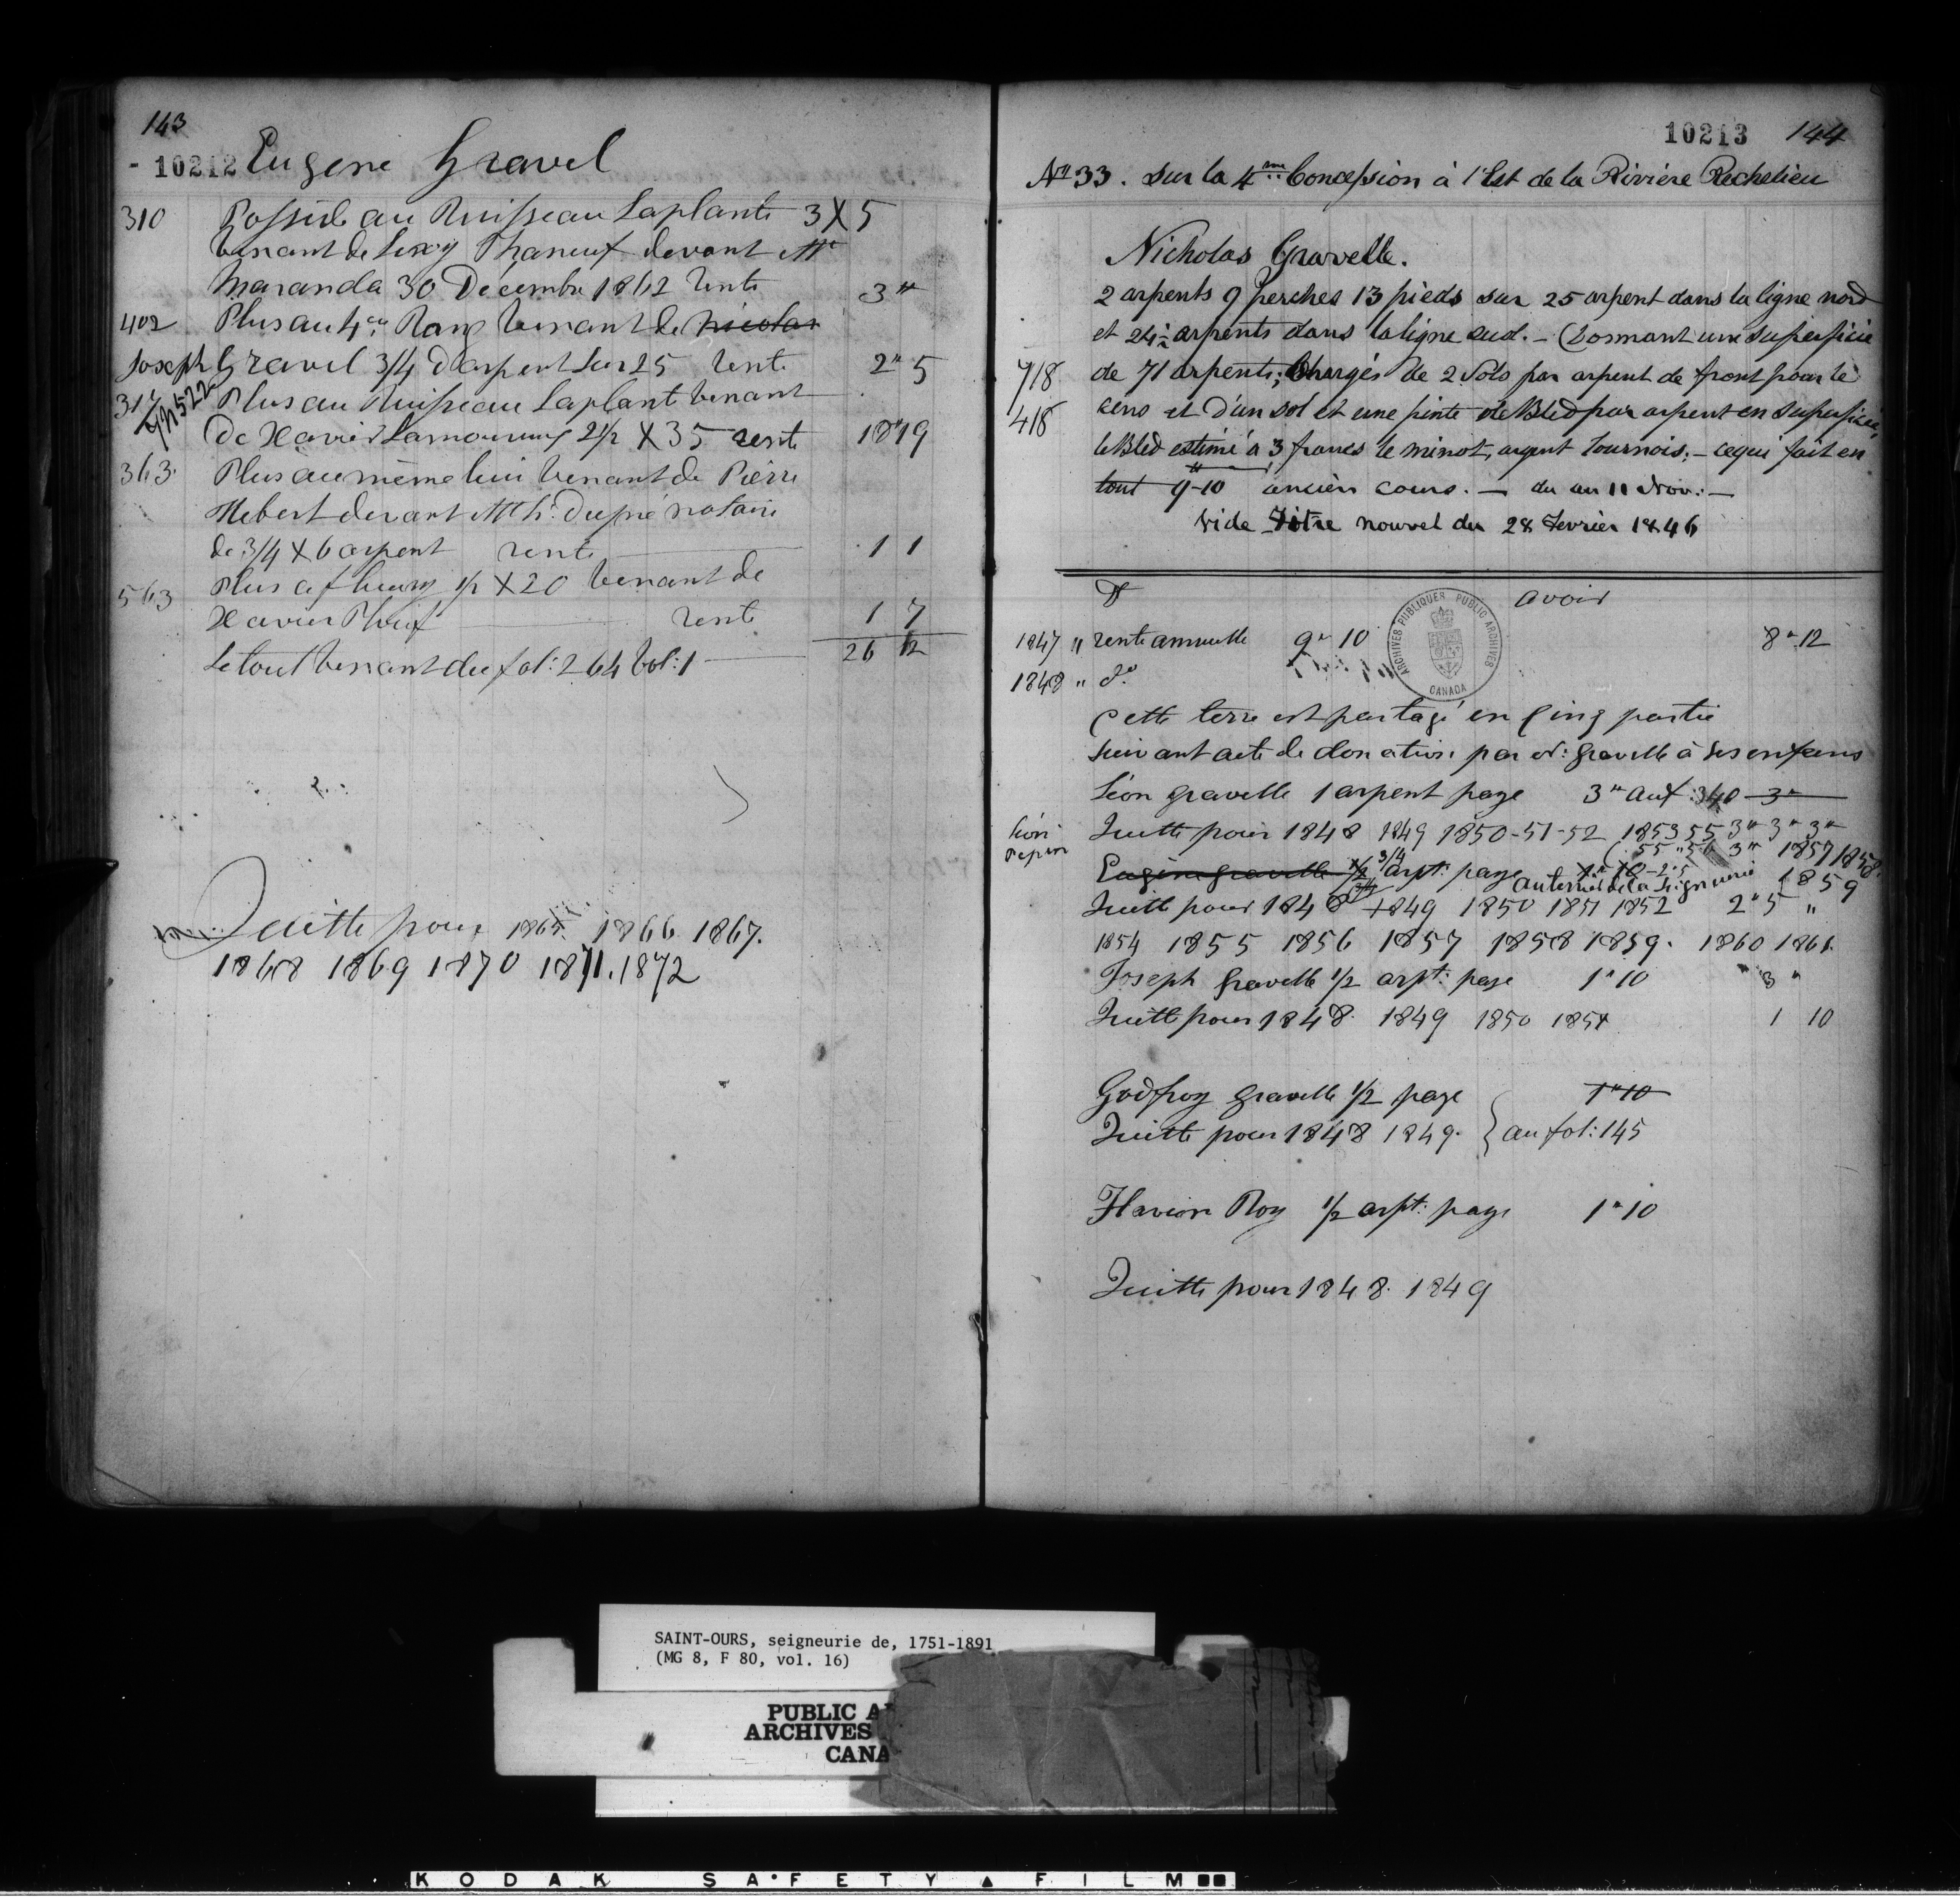 143
- 10212 Eugene Gravel
310 Possede au Ruisseau Laplante 3 X 5
venant de Phaneuf devant Mtr
Maranda 30 Décembre 1862 rente 3 "
402 Plus au 4em Rang venant de Nicolas
Joseph Gravel 3/4 d'arpent sur 25 rente 2 " 5
317 Plus au Ruisseau Laplant venant
De Xavier Lamoureux 2 1/2 X 35 rente 18 " 19
363 Plus au même lieu venant de Pierre
Hebert devant Mtr Dupré notaire
de 3/4 X 6 arpent rente 1 1
563 Plus 1/2 X 20 venant de
Xavier rente 1 7
Le tout venant du fol: 264 Vol: 1 26 12
Quitte pour 1865. 1866 1867.
1868 1869 1870 1871. 1872
10213 144
No 33. sur la 4me Concession à l'Est de la Rivière Richelieu
Nicholas Gravelle.
2 arpents 9 perches 13 pieds sur 25 arpent dans la ligne nord
et 24 1/2 arpents dans la ligne sud. - Formant une superficie
718 de 71 arpents; Chargés de 2 Sols par arpent de front pour le
418 cens et d'un sol et une pinte de Bled par arpent en superficie,
le Bled estimé à 3 francs le minot, argent tournois; - ce qui fait en
tout 9"-10 ancien cours. - du au 11 Nov: -
Vide Titre nouvel du 28 Fevrier 1846
Dt avoir
ARCHIVES PUBLIQUES PUBLIC ARCHIVES CANADA
1847 " rente annuelle 9 " 10 8 " 12
1848 " do
Cette terre est partagé en Cinq partie
suivant acte de donation par N: Gravelle à ses enfans
Léon gravelle 1 arpent paye 3 " au f: 340 3 "
Léon Pepin Quitte pour 1848 1849 1850-51-52 1853 55 3 " 3 " 3 "
55 " 56 3 " 1857 1858.
Eugène gravelle 1/2 3/4 arpt: paye 1 " 10 - 2 " 5 1859
au terrier de la Seigneurie
Quitte pour 1848 1849 1850 1851 1852 2 " 5 "
1854 1855 1856 1857 1858 1859. 1860 1861.
Joseph Gravelle 1/2 arpt: paye 1 " 10 3 "
Quitte pour 1848. 1849 1850 1851 1 10
Godfroy gravelle 1/2 paye 1 " 10
Quitte pour 1848 1849. } au fol: 145
Flavien Roy 1/2 arpt: paye 1 " 10
Quitte pour 1848. 1849
SAINT-OURS, seigneurie de, 1751-1891
(MG 8, F 80, vol. 16)
PUBLIC A
ARCHIVES
CANA
KODAK SAFETY FILM